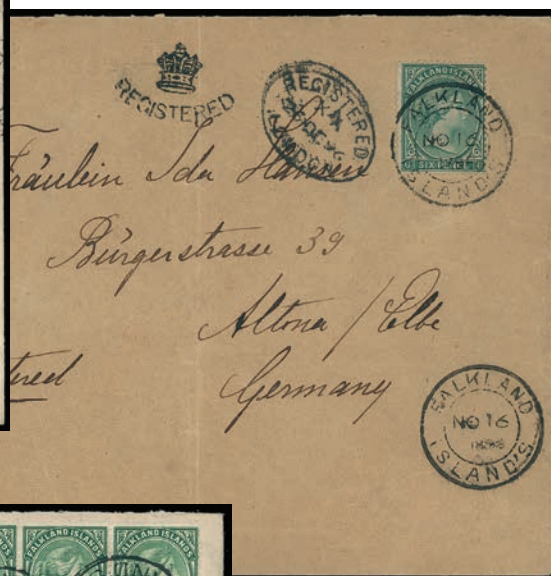 REGISTERED
REGISTERED
LONDON
FALKLAND ISLANDS
SIX PENCE
FALKLAND
NO 16
ISLANDS
Fräulein Ida Hansen
Bürgerstrasse 39
Altona / Elbe
Germany
FALKLAND
NO 16
ISLANDS
FALKLAND ISLANDS
FALKLAND ISLANDS